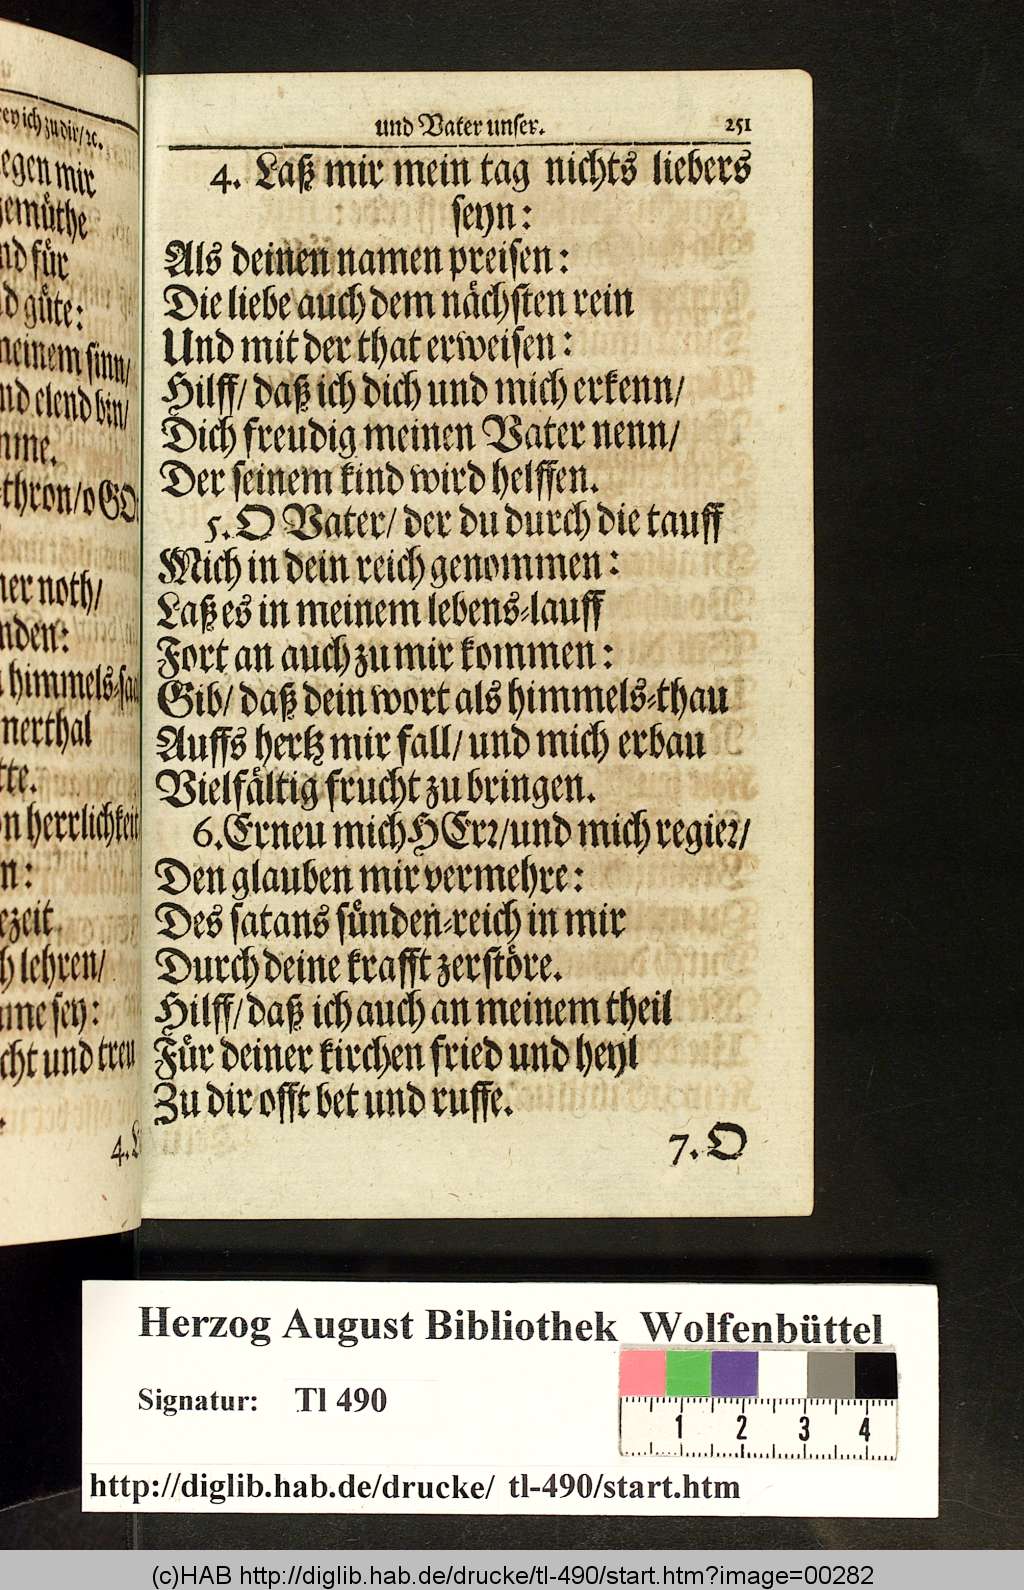 rey ich zu dir/ ꝛc.
egen mir
gemüthe
nd für
nd güte:
meinem sinn/
nd elend bin/
mme.
thron/ o GO
ner noth/
nden:
himmels-saa
nerthal
tte.
n herrlichkeit
n:
ezeit
h lehren/
ame sey:
cht und treu
4. L
und Vater unser. 251
4. Laß mir mein tag nichts liebers
seyn:
Als deinen namen preisen:
Die liebe auch dem nächsten rein
Und mit der that erweisen:
Hilff/ daß ich dich und mich erkenn/
Dich freudig meinen Vater nenn/
Der seinem kind wird helffen.
5. O Vater/ der du durch die tauff
Mich in dein reich genommen:
Laß es in meinem lebens-lauff
Fort an auch zu mir kommen:
Gib/ daß dein wort als himmels-thau
Auffs hertz mir fall/ und mich erbau
Vielfältig frucht zu bringen.
6. Erneu mich HErr/ und mich regier/
Den glauben mir vermehre:
Des satans sünden-reich in mir
Durch deine krafft zerstöre.
Hilff/ daß ich auch an meinem theil
Für deiner kirchen fried und heyl
Zu dir offt bet und ruffe.
7. O
Herzog August Bibliothek Wolfenbüttel
Signatur: Tl 490
1 2 3 4
http://diglib.hab.de/drucke/ tl-490/start.htm
(c)HAB http://diglib.hab.de/drucke/tl-490/start.htm?image=00282